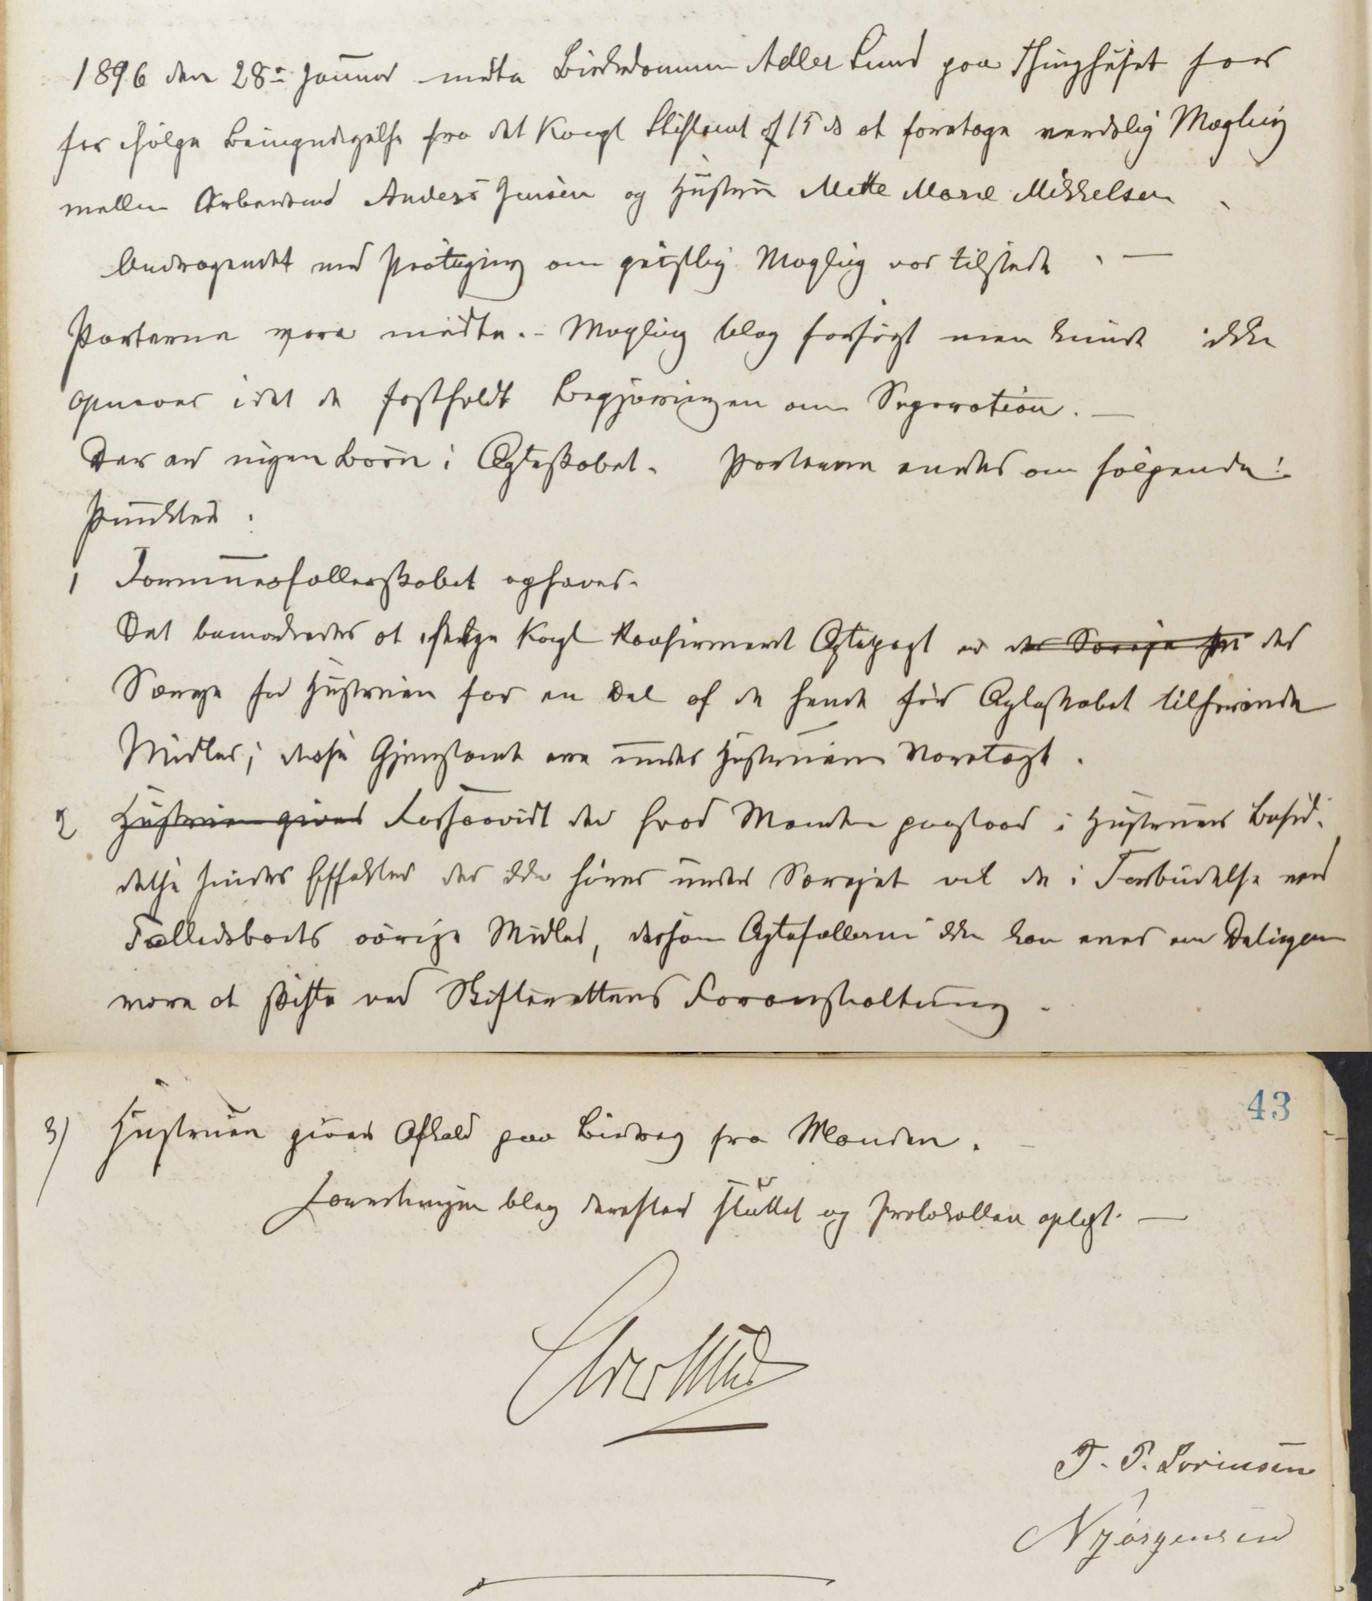 1896 den 28de Januar mødte Birkedommer Adler Lund paa Thinghuset her
for ifølge Bemyndigelse fra det Kongl Stiftamt af 15 ds at foretage verdslig Mægling
mellem Arbeidsmand Anders Jensen og Hustru Mette Marie Mikkelsen.
Andragendet med Paategning om geistlig Mægling var tilstede. —
Parterne vare mødte. – Mægling blev forsøgt men kunde ikke
opnaaes idet de fastholdt Begjæringen om Separation. —
Der er ingen Børn i Ægteskabet. Parterne enedes om følgende
Punkter:
1 Formuesfællesskabet ophæves.
Det bemærkedes at ifølge Kongl konfirmeret Ægtepagt er der Særeje for der
Særeje for Hustruen for en Del af de hende før Ægteskabet tilhørende
Midler; disse Gjenstande ere under Hustruens Varetægt.
2 Hustruen giver Forsaavidt der hvad Manden paastaar i Hustruens Besid-
delse findes Effekter der ikke høres under Særejet vil de i Forbindelse med
Fælledsboets øvrige Midler, dersom Ægtefællerne ikke kan enes om Delingen
være at skifte ved Skifterettens Foranstaltning.
43
3) Hustruen giver Afkald paa Bidrag fra Manden.
Forretningen blev derefter sluttet og Protokollen oplæst. —
Adler Lund
T. P. Sørensen
N Jørgensen